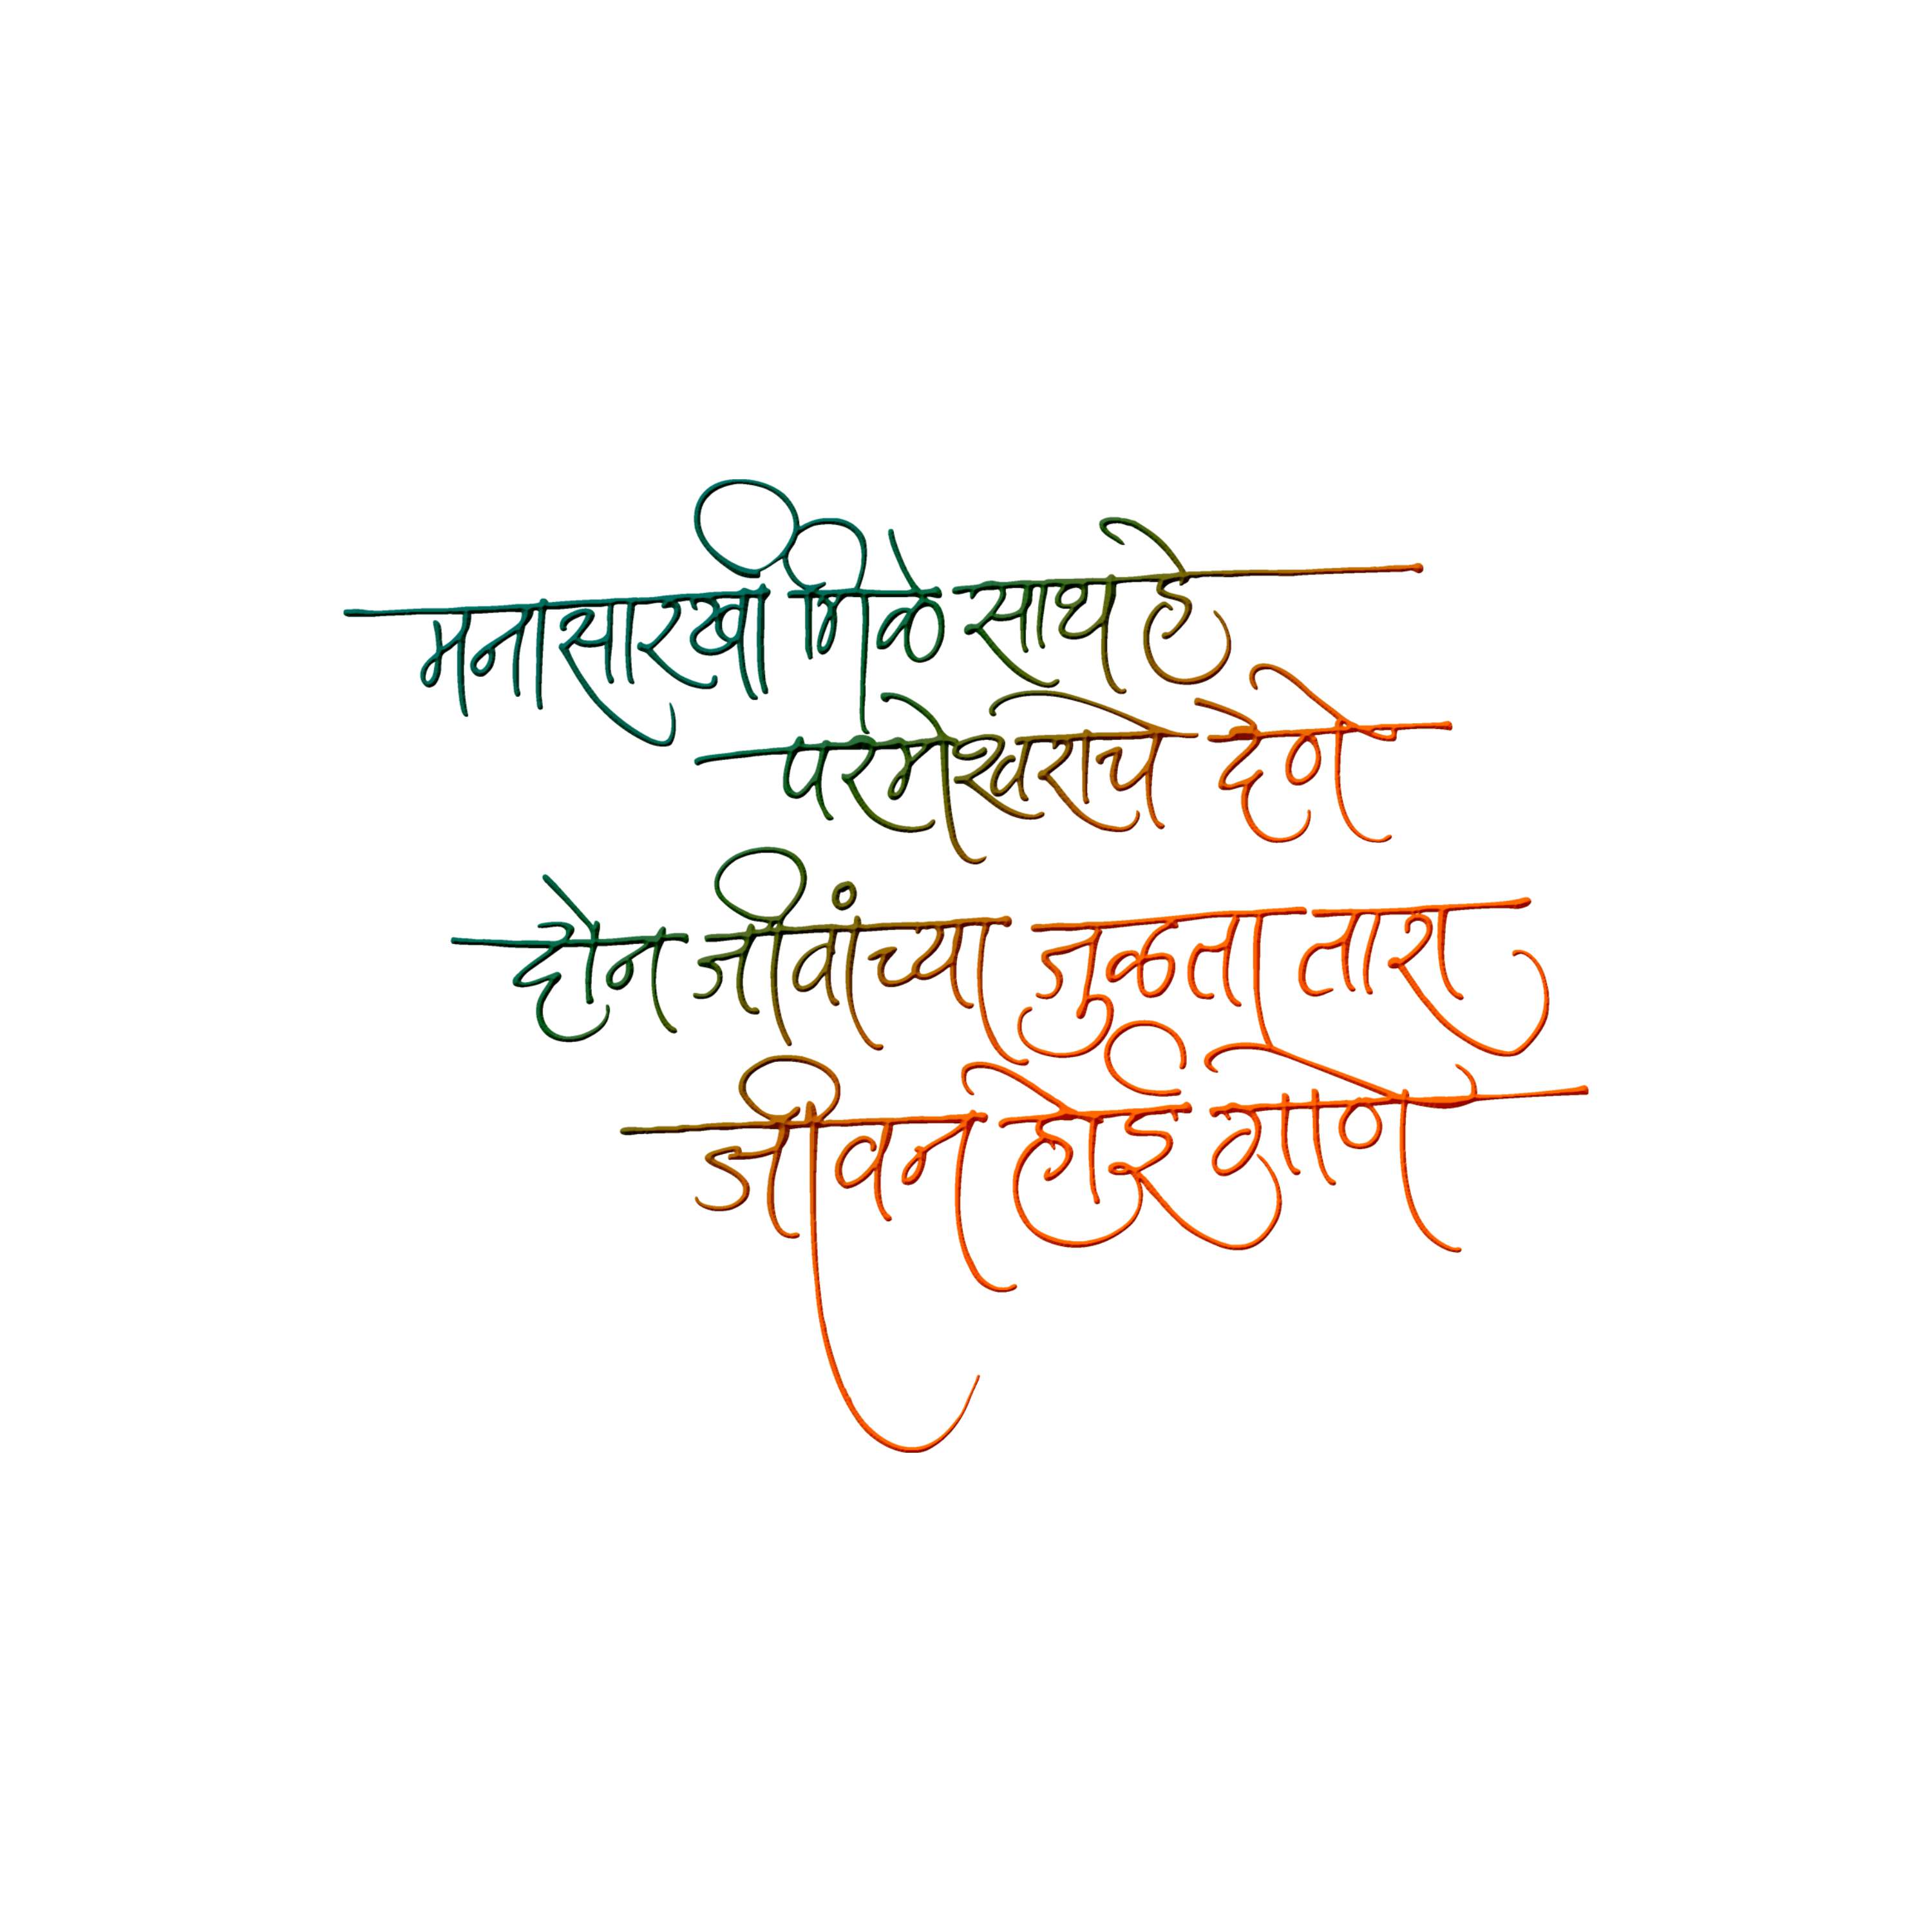 मनासारखी मिळे साथ हे
परमेश्वराचे देणे
दोन जीवांच्या जुळता तारा
जीवन होई गाणे